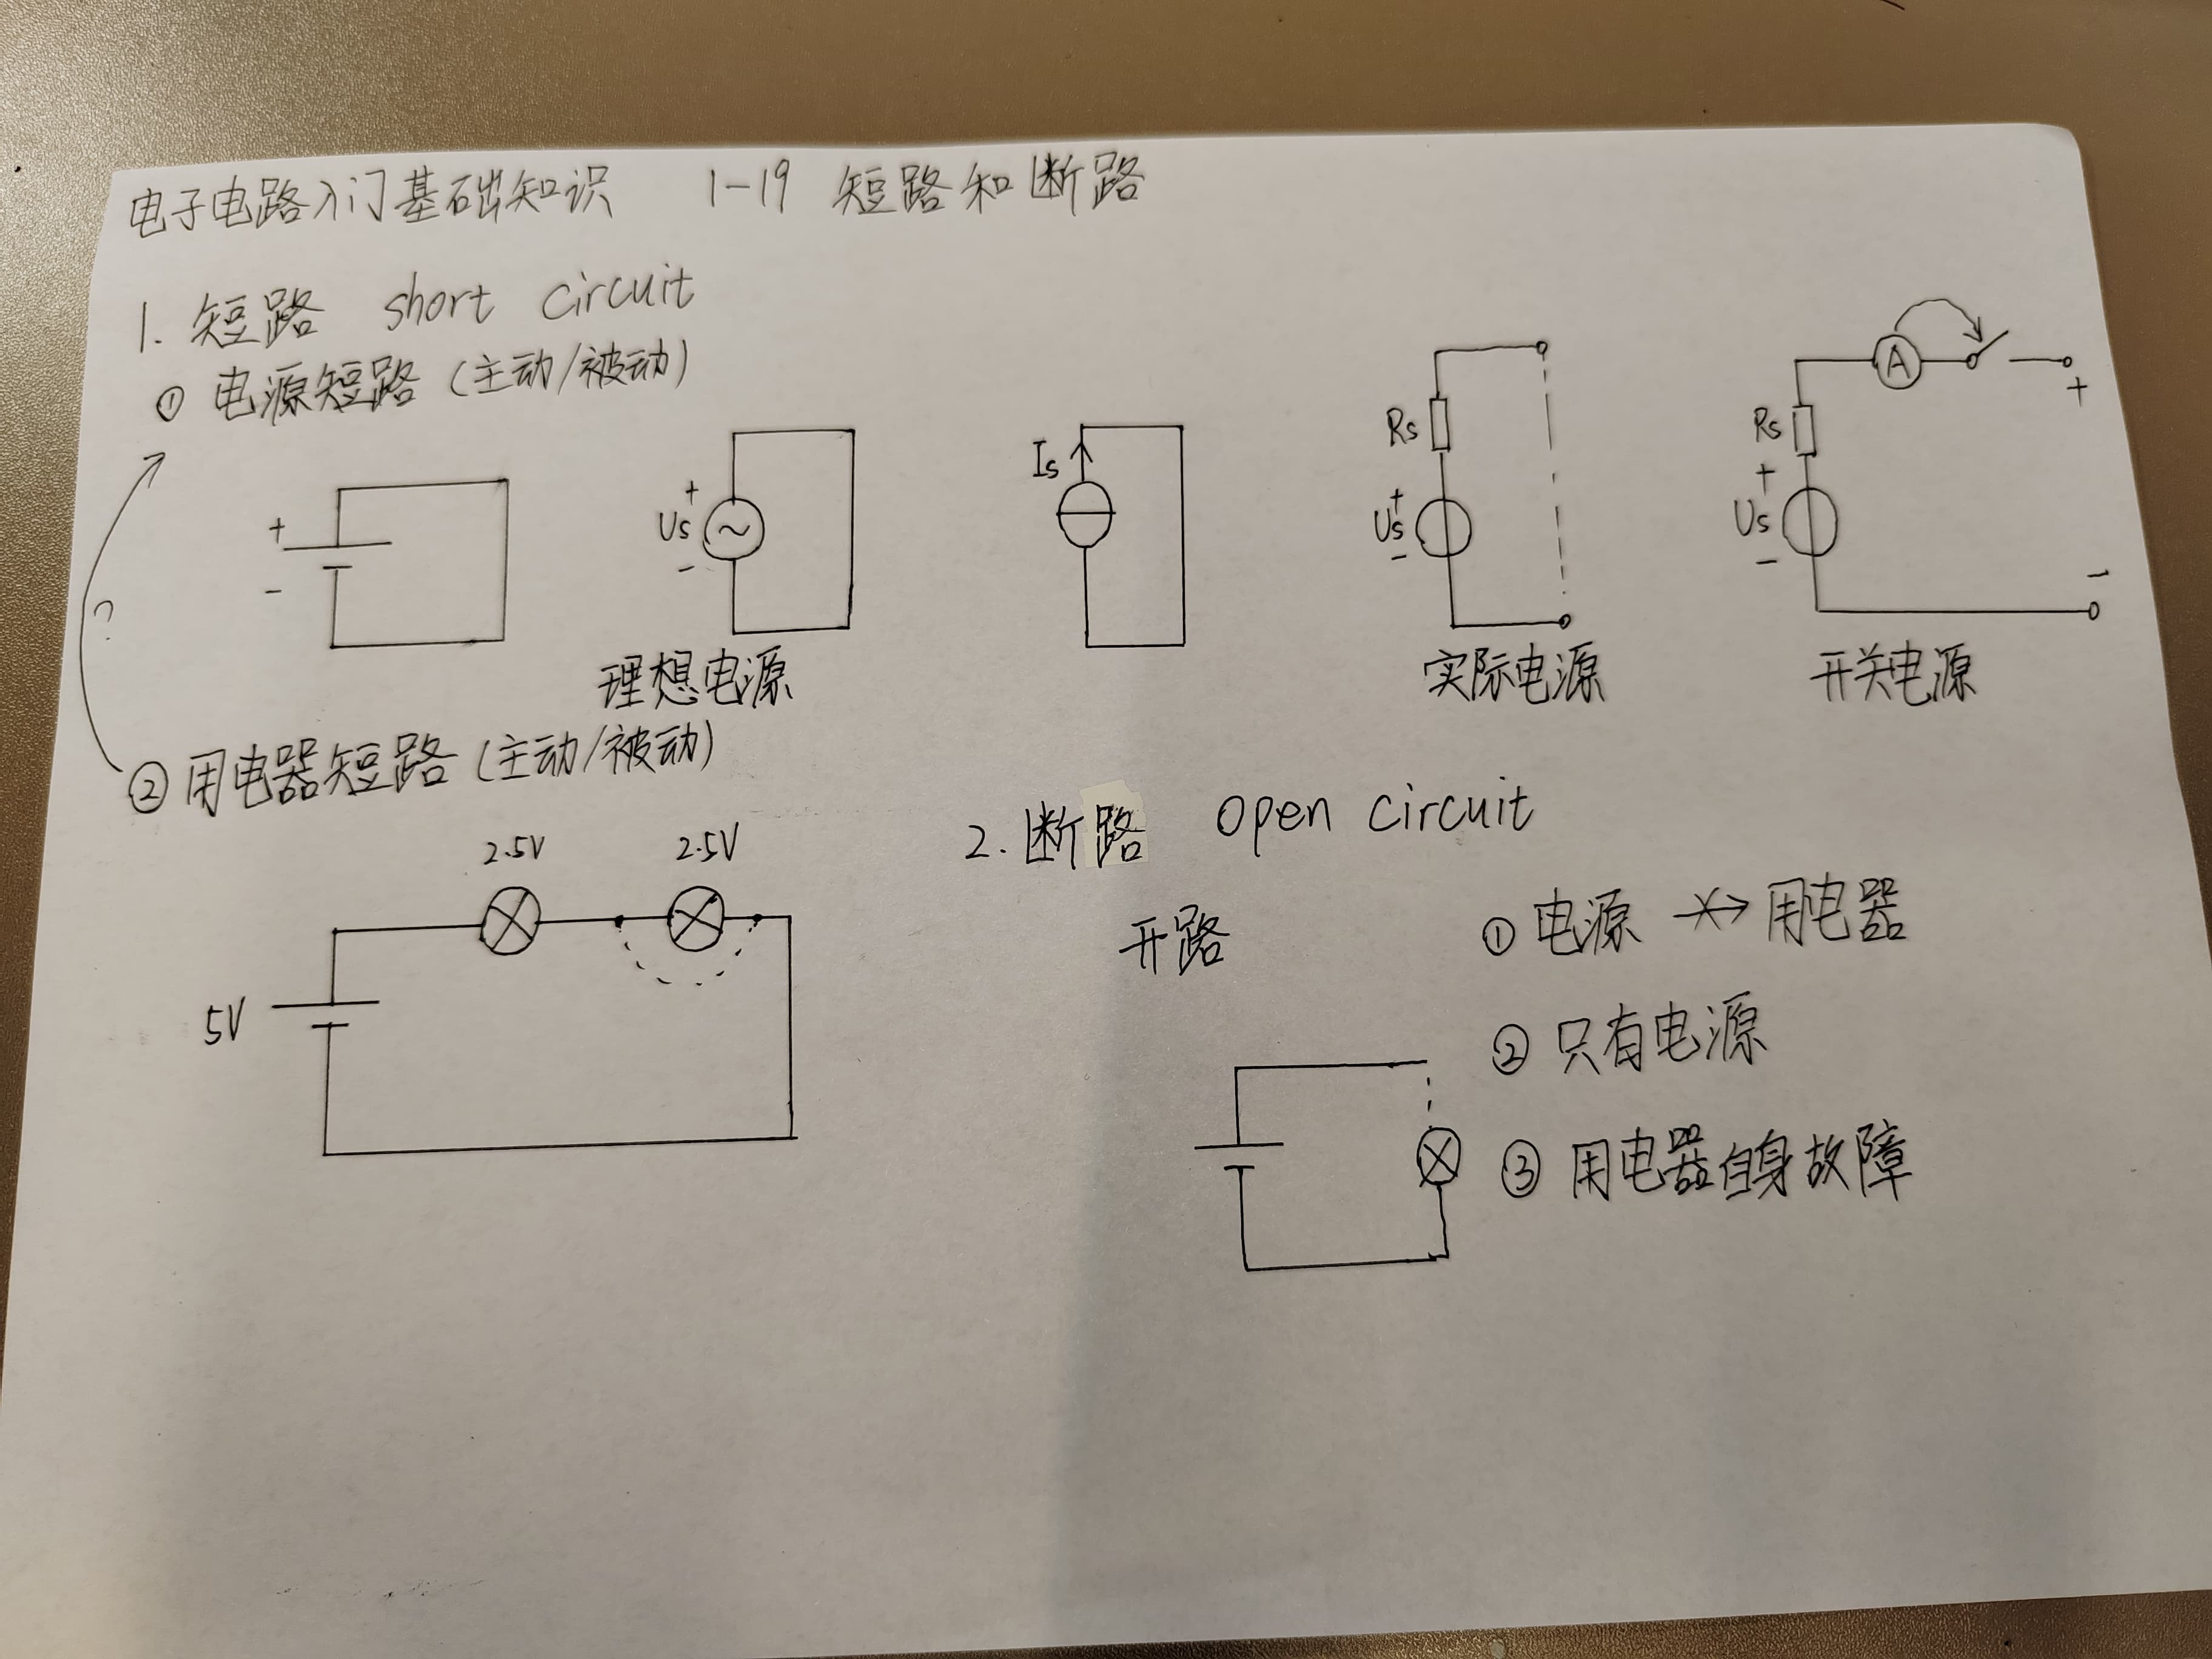 电子电路入门基础知识 1-19 短路和断路
1. 短路 short circuit
① 电源短路 (主动/被动)
+
-
+
Us
-
Is
Rs
+
Us
-
A
+
Rs
+
Us
-
-
理想电源
实际电源
开关电源
?
② 用电器短路 (主动/被动)
2.5V
2.5V
5V
2. 断路 open circuit
开路
① 电源 用电器
② 只有电源
③ 用电器自身故障